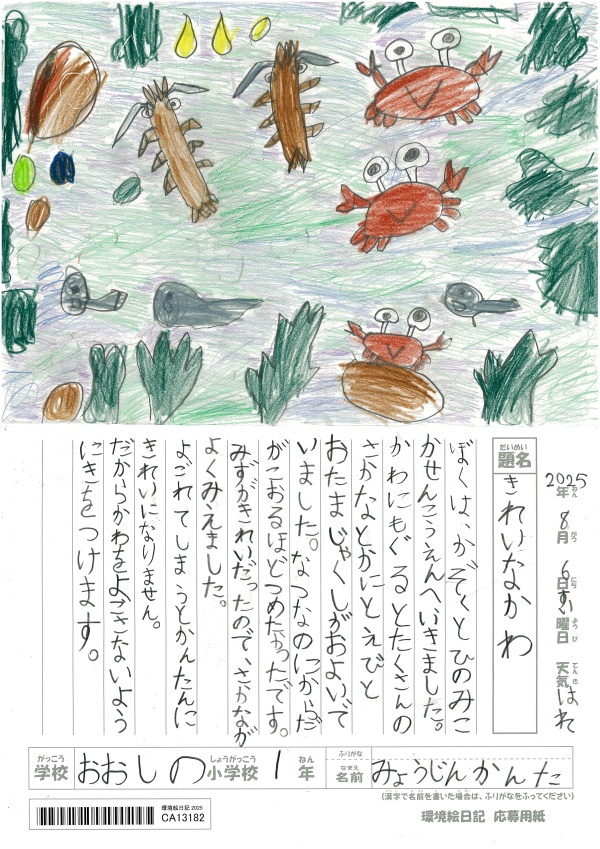 2025年 8月 6日 すい曜日 天気 はれ
ねん がつ にち ようび てんき
だいめい
題名
きれいなかわ
ぼくは、かぞくとひのみこ
かせんこうえんへいきました。
かわにもぐるとたくさんの
さかなとかにとえびと
おたまじゃくしがおよいで
いました。なつなのにからだ
がこおるほどつめたかったです。
みずがきれいだったので、さかなが
よくみえました。
よごれてしまうとかんたんに
きれいになりません。
だからかわをよごさないよう
にきをつけます。
がっこう しょうがっこう ねん ふりがな
学校 おおしの 小学校 1年 なまえ 名前 みょうじんかんた
(漢字で名前を書いた場合は、ふりがなをふってください)
環境絵日記 2025
CA13182
環境絵日記 応募用紙